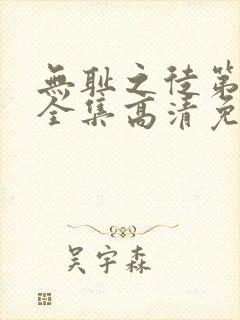 無耻之徒第
全集高清免
吴宇森